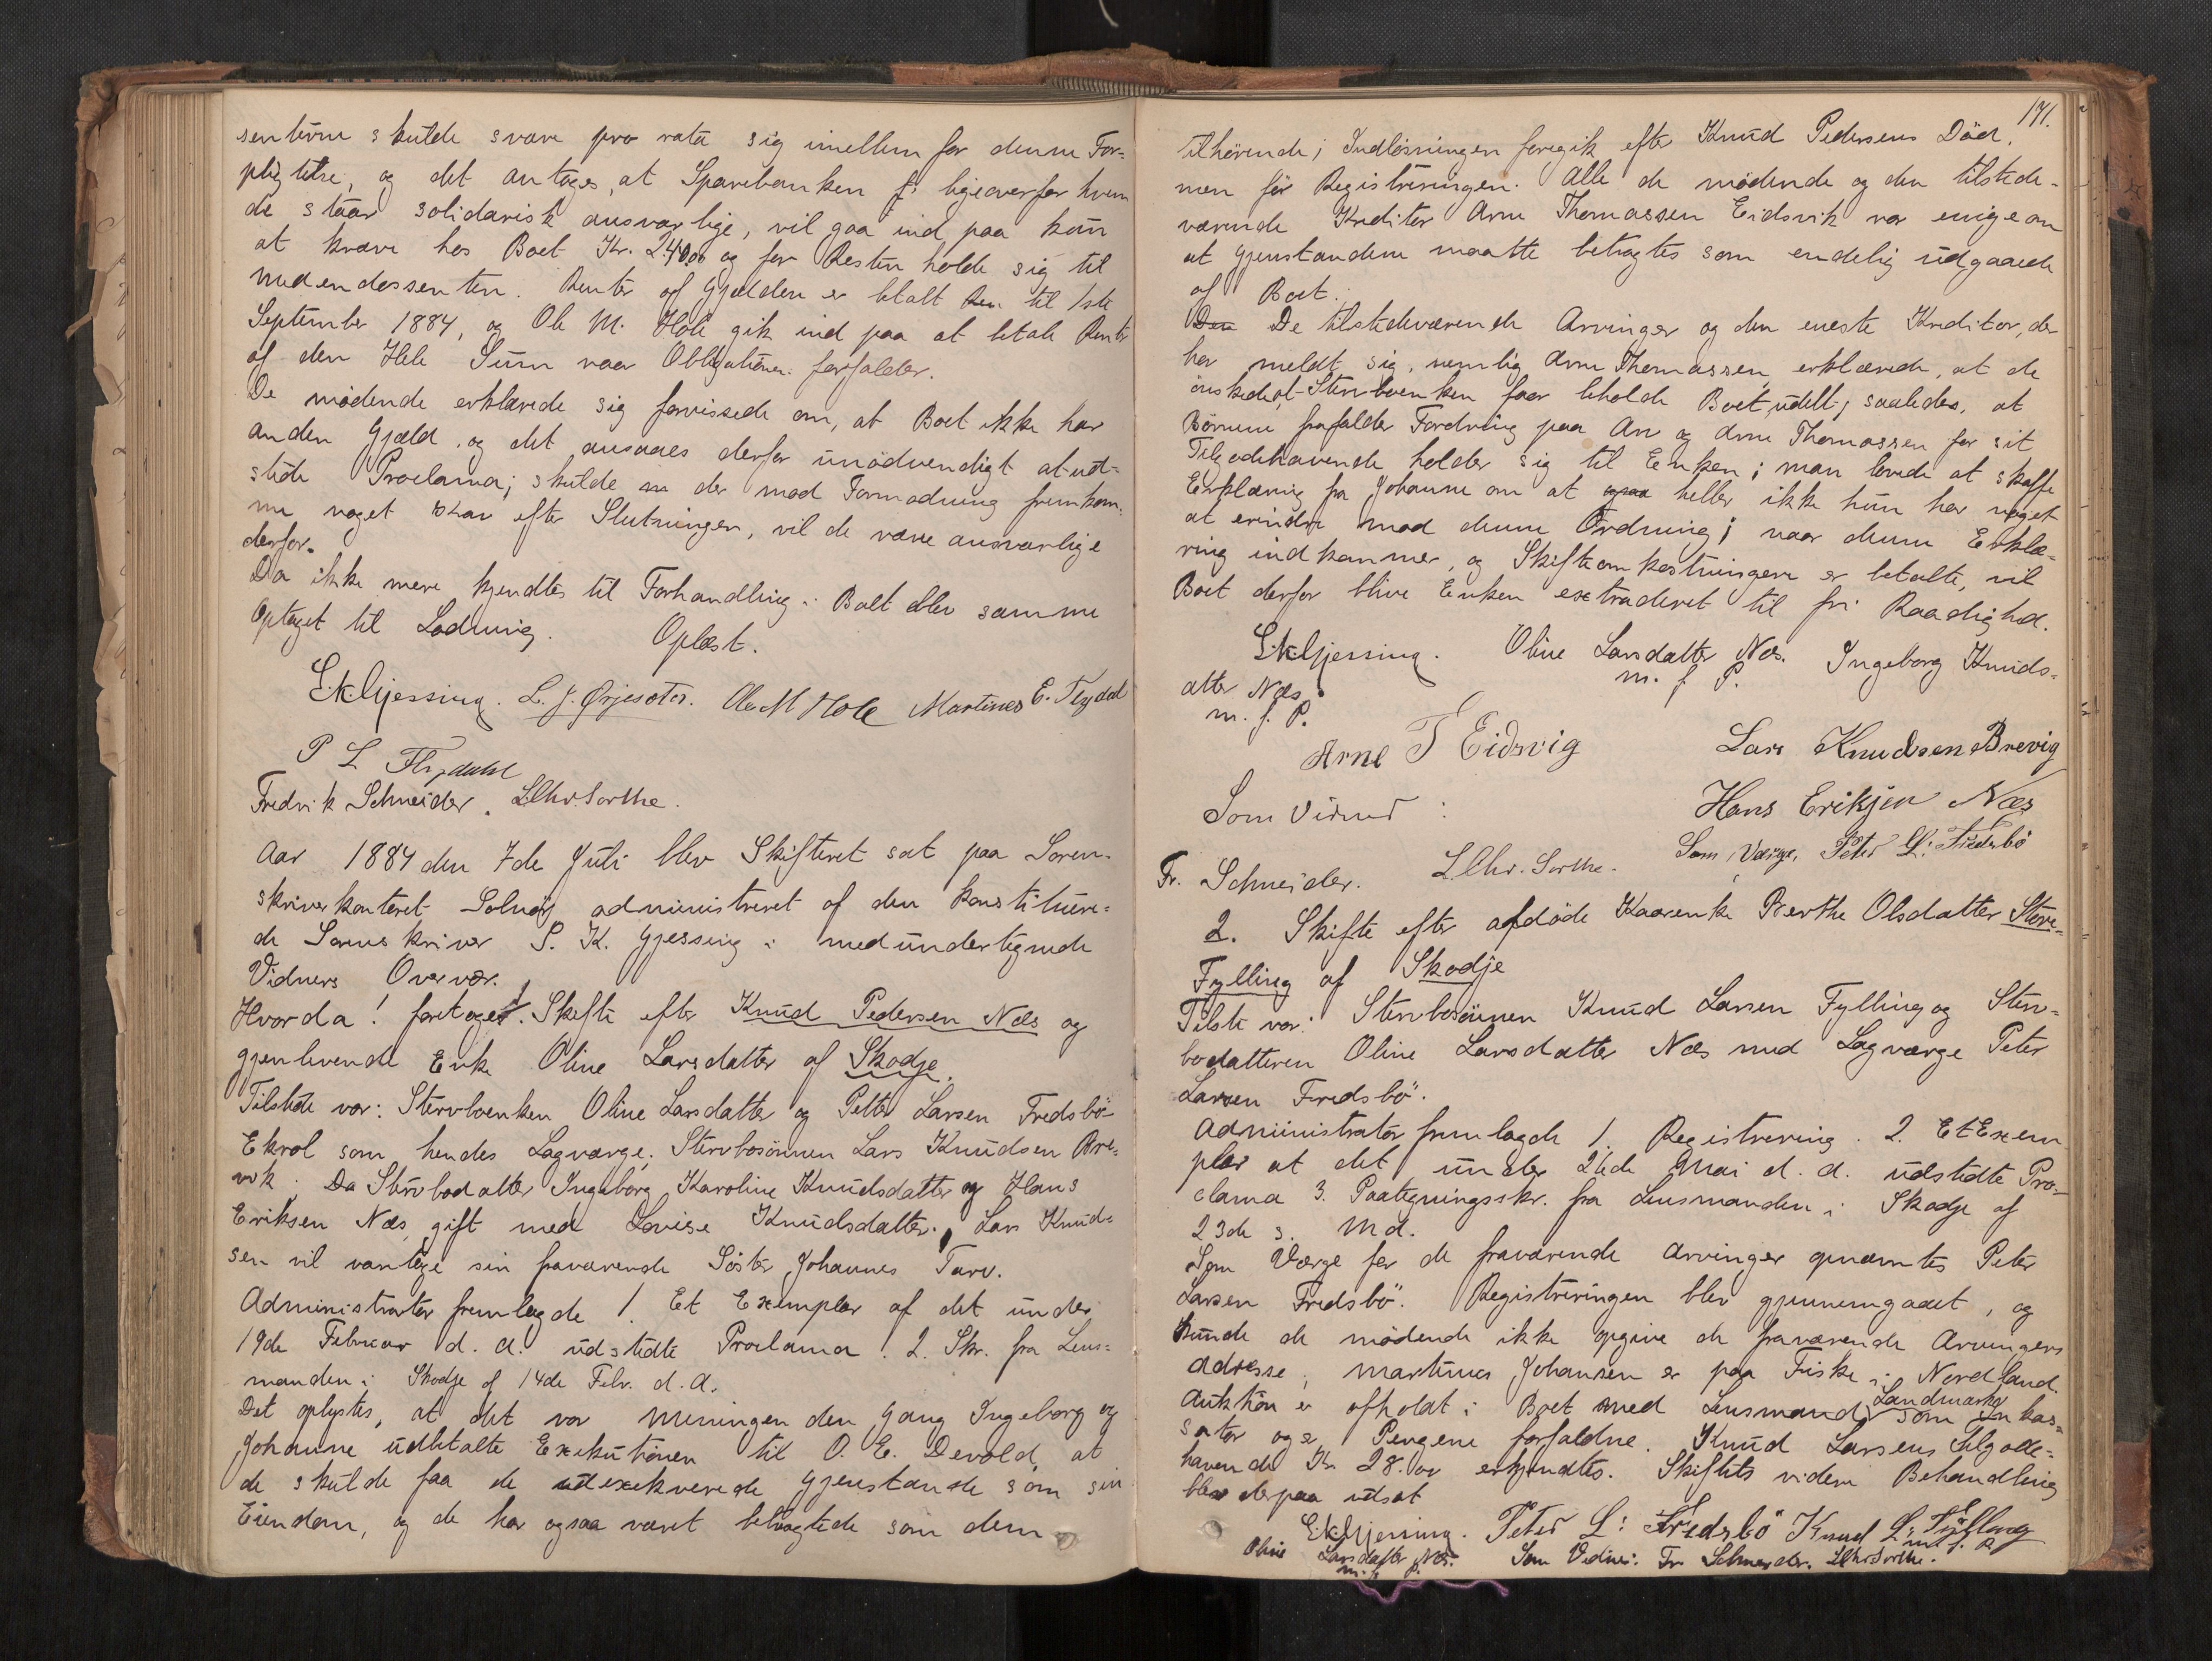 senterne skulde svare pro rata sig imellem for denne For-
pligtelse, og det antages, at Sparebanken ligeoverfor hvem
de staar solidarisk ansvarlige, vil gaa ind paa kun
at kræve hos Boet Kr. 240.00 og for Resten holde sig til
medendossenten. Renter af Gjælden er betalt til 1ste
September 1884, og Ole M. Hole gik ind paa at betale Renter
af den Hele Sum naar Obligationen forfalder.
De mødende erklærede sig forvissede om, at Boet ikke har
anden Gjæld, og det ansaaes derfor unødvendigt at ud-
stede Proclama; skulde der mod Formodning fremkom-
me noget Krav efter Slutningen, vil de være ansvarlige
derfor.
Da ikke mere kjendtes til Forhandling i Boet blev samme
optaget til Lodning. Oplæst.
S.K. Gjessing. L. J. Ørjesæter. Ole M Hole Martines E. Flydal
P L Flydahl
Fredrik Schneider. L. Chr. Sorthe.
Aar 1884 den 7de Juli blev Skifteret sat paa Soren-
skriverkontoret Solnør administreret af den konstituere-
de Sorenskriver S. K. Gjessing i medundertegnede
Vidners Overvær.
Hvorda! foretoges 1. Skifte efter Knud Pedersen Næs og
gjenlevende Enke Oline Larsdatter af Skodje.
Tilstede var: Stervboenken Oline Larsdatter og Petter Larsen Fredsbö-
Ekrol som hendes Lagværge; Stervbosønnen Lars Knudsen Bre-
vik. Da Stervbodatter Ingeborg Karoline Knudsdatter og Hans
Eriksen Næs, gift med Lovise Knudsdatter. Lars Knud-
sen vil varetage sin fraværende Søster Johannes Tarv.
Administrator fremlagde 1. Et Exemplar af det under
19de Februar d. A. udstedte Proclama. 2. Skr. fra Lens-
manden i Skodje af 14de Febr. d. A.
Det oplystes, at det var Meningen den Gang Ingeborg og
Johanne udbetalte Exekutionen til O. E. Devold, at
de skulde faa de udexekverede Gjenstande som sin
Eiendom, og de har ogsaa været betragtede som dem
171.
tilhørende; Indløsningen foregik efter Knud Pedersens Död,
men før Registreringen. Alle de mødende og den tilstede-
værende Kreditor Arne Thomassen Eidsvik var enige om
at Gjenstandene maatte betragtes som endelig udgaaede
af Boet.
De tilstedeværende Arvinger og den eneste Kreditor, der
har meldt sig, nemlig Arne Thomassen, erklærede, at de
önskede, at Stervboenken faar beholde Boet udelt, saaledes, at
Børnene frafalder Fordring paa Arv og Arne Thomassen for sit
Tilgodehavende holder sig til Enken; man lovede at skaffe
Erklæring fra Johanne om at heller ikke hun har noget
at erindre mod denne Ordning; naar denne Erklæ-
ring indkommer, og Skifteomkostningerne er betalte, vil
Boet derfor blive Enken extraderet til fri Raadighed.
S.K. Gjessing. Oline Larsdatter Næs. Ingeborg Knuds-
m. f. P.
atter Næs
m. f. P.
Arne T Eidsvig Lars Knudsen Brevig
Som Vidner: Hans Eriksen Næs
Fr. Schneider. L. Chr. Sorthe. Som Værge, Peter L: Fredsbö
2. Skifte efter afdøde Kaarenke Berthe Olsdatter Store-
Fylling af Skodje
Tilste var: Stervbosønnen Knud Larsen Fylling og Sterv-
bodatteren Oline Larsdatter Næs med Lagværge Peter
Larsen Fredsbö.
Administrator fremlagde 1. Registrering. 2. Et Exem
plar at det under 26de Mai d. a. udstedte Pro-
clama 3. Paategningsskr. fra Lensmanden i Skodje af
23de s. Md.
Som Værge for de fraværende Arvinger opnævntes Peter
Larsen Fredsbö. Registreringen blev gjennemgaaet, og
kunde de mødende ikke opgive de fraværende Arvingers
Adresse; Martinus Johansen er paa Fiske i Nordland.
Auktion er afholdt i Boet med Lensmand Landmark som Inkas-
sator og Pengene forfaldne. Knud Larsens Tilgode-
havende Kr. 28.00 erkjendtes. Skiftets videre Behandling
blev derpaa udsat
S.K. Gjessing. Peter L: Fredsbö Knud L: Fylling
m. f. P.
Oline Larsdatter Næs. Som Vidner: Fr. Schneider. L Chr Sorthe.
m. f. P.